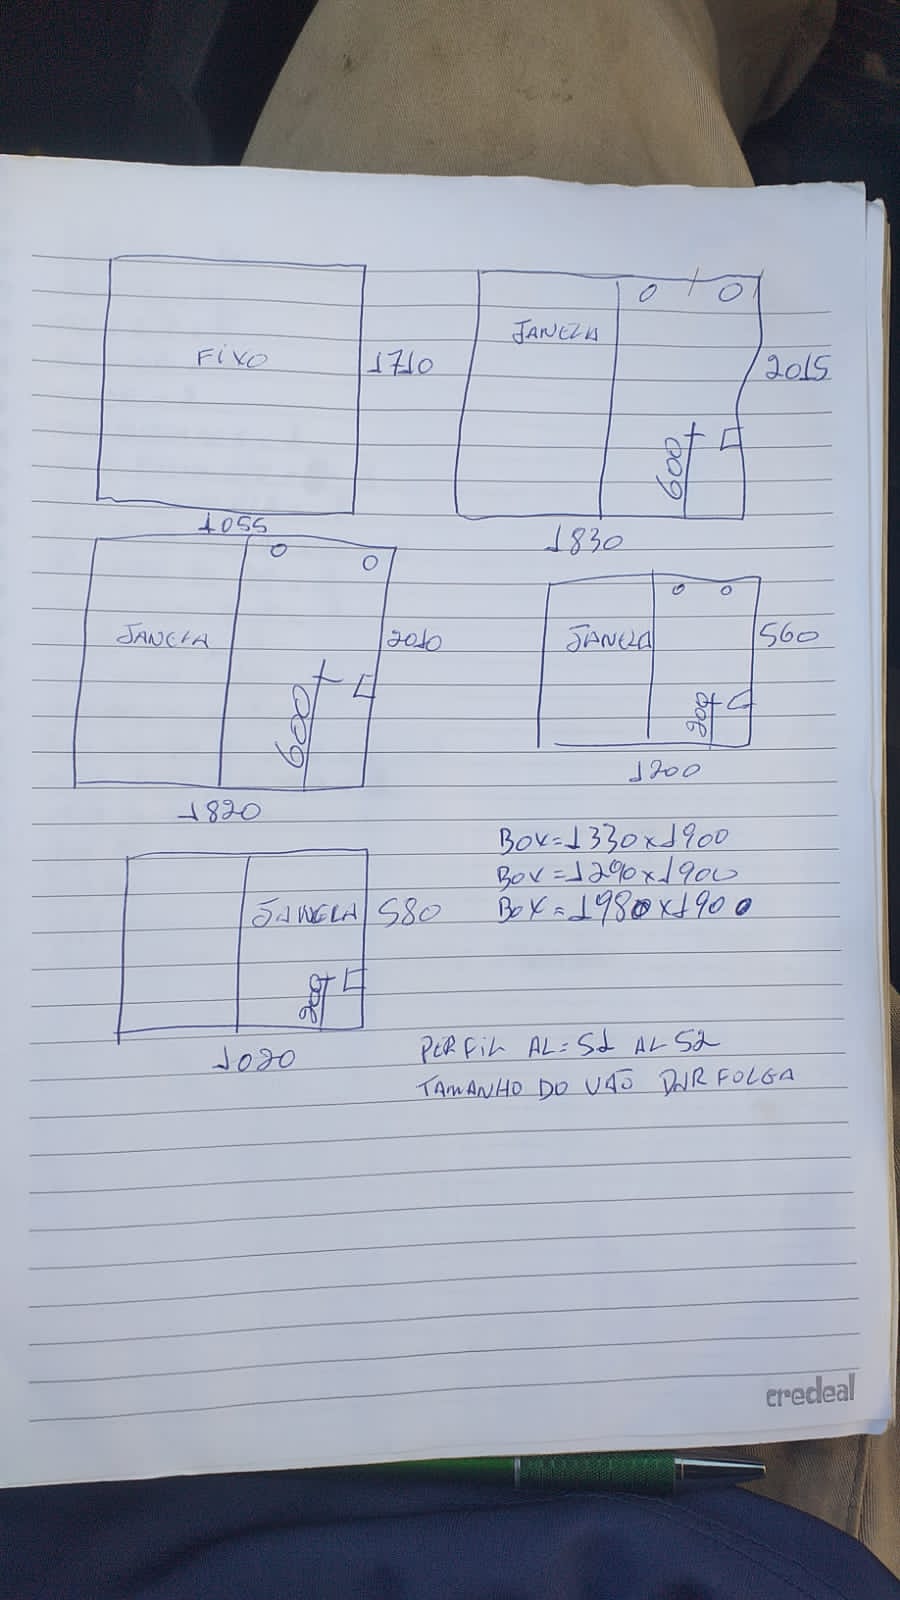 FIXO
1710
1055
JANELA
2015
600
1830
JANELA
2010
600
1820
JANELA
560
200
1200
JANELA
580
200
1020
BOX=1330x1900
BOX=1290x1900
BOX=1980x1900
PERFIL AL=51 AL 52
TAMANHO DO VÃO DAR FOLGA
credeal